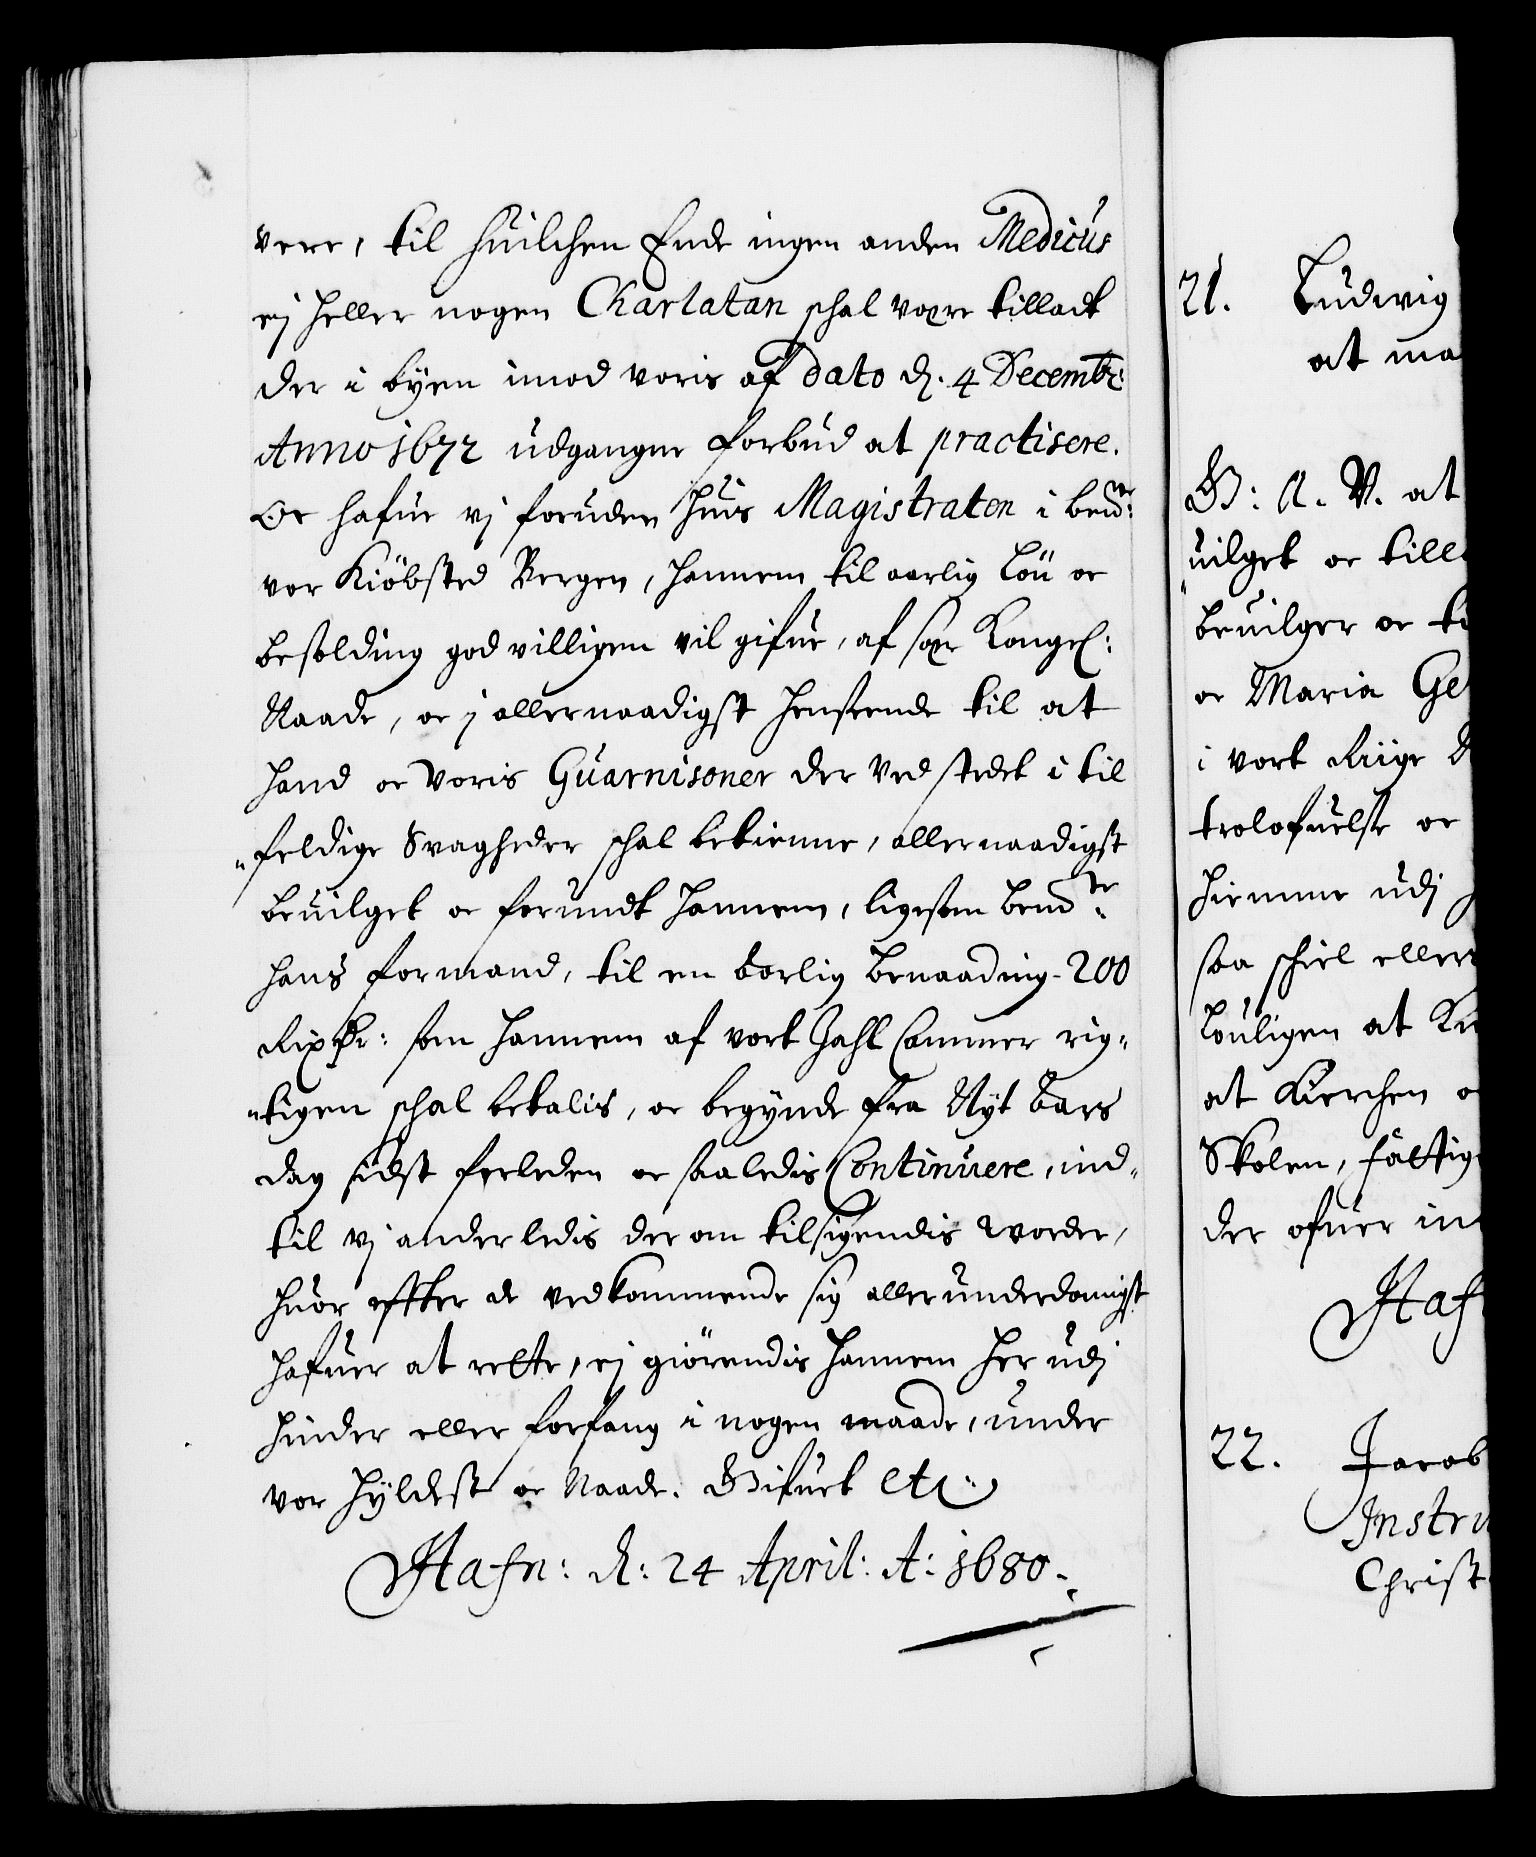 vere, til huilchen Ende ingen anden Medicus
ej heller nogen Charlatan schal voxre tilladt
der i byen imod voris af dato d. 4 Decembr:
Anno 1672 udgangne forbud at practisere.
Oc hafue vj foruden huis Magistraten i bem:te
vor Kiöbsted Bergen, hannem til aarlig Löu oc
besolding godvilligen vil gifue, af sær Kongel:
Naade, oc j allernaadigst henseende til at
hand oc voris Guarnisoner der ved stedet i til
"feldige Svagheder schal betienne, allernaadigst
beuilget oc forundt hannem, ligesom bem:te
hans formand, til en Aarlig benaading 200
Rixdr: som hannem af vort Zahl Cammer rig"
"tigen schal betalis, oc begynde fra Nyt Aars
dag sidst forleden oc saaledis Continuere, ind"
til vj anderledis der om tilsigendis worder,
huor effter de vedkommende sig allerunderdanigst
hafuer at rette, ej giörendis hannem her udj
hinder eller forfang i nogen maade, under
vor hyldest oc Naade. Gifuet etc:
Hafn: d: 24 April: A: 1680.
21. Ludwig
at ma
G: A. V. at
uilget oc till
beuilger oc ti
oc Maria Ge
i vort Riige D
trolofuelse oc
hiemme udj
saa schiel eller
Louligen at K
at Kierchen o
Skolen, fattig
der ofuer in
Haf
22. Jacob
Instru
Christ